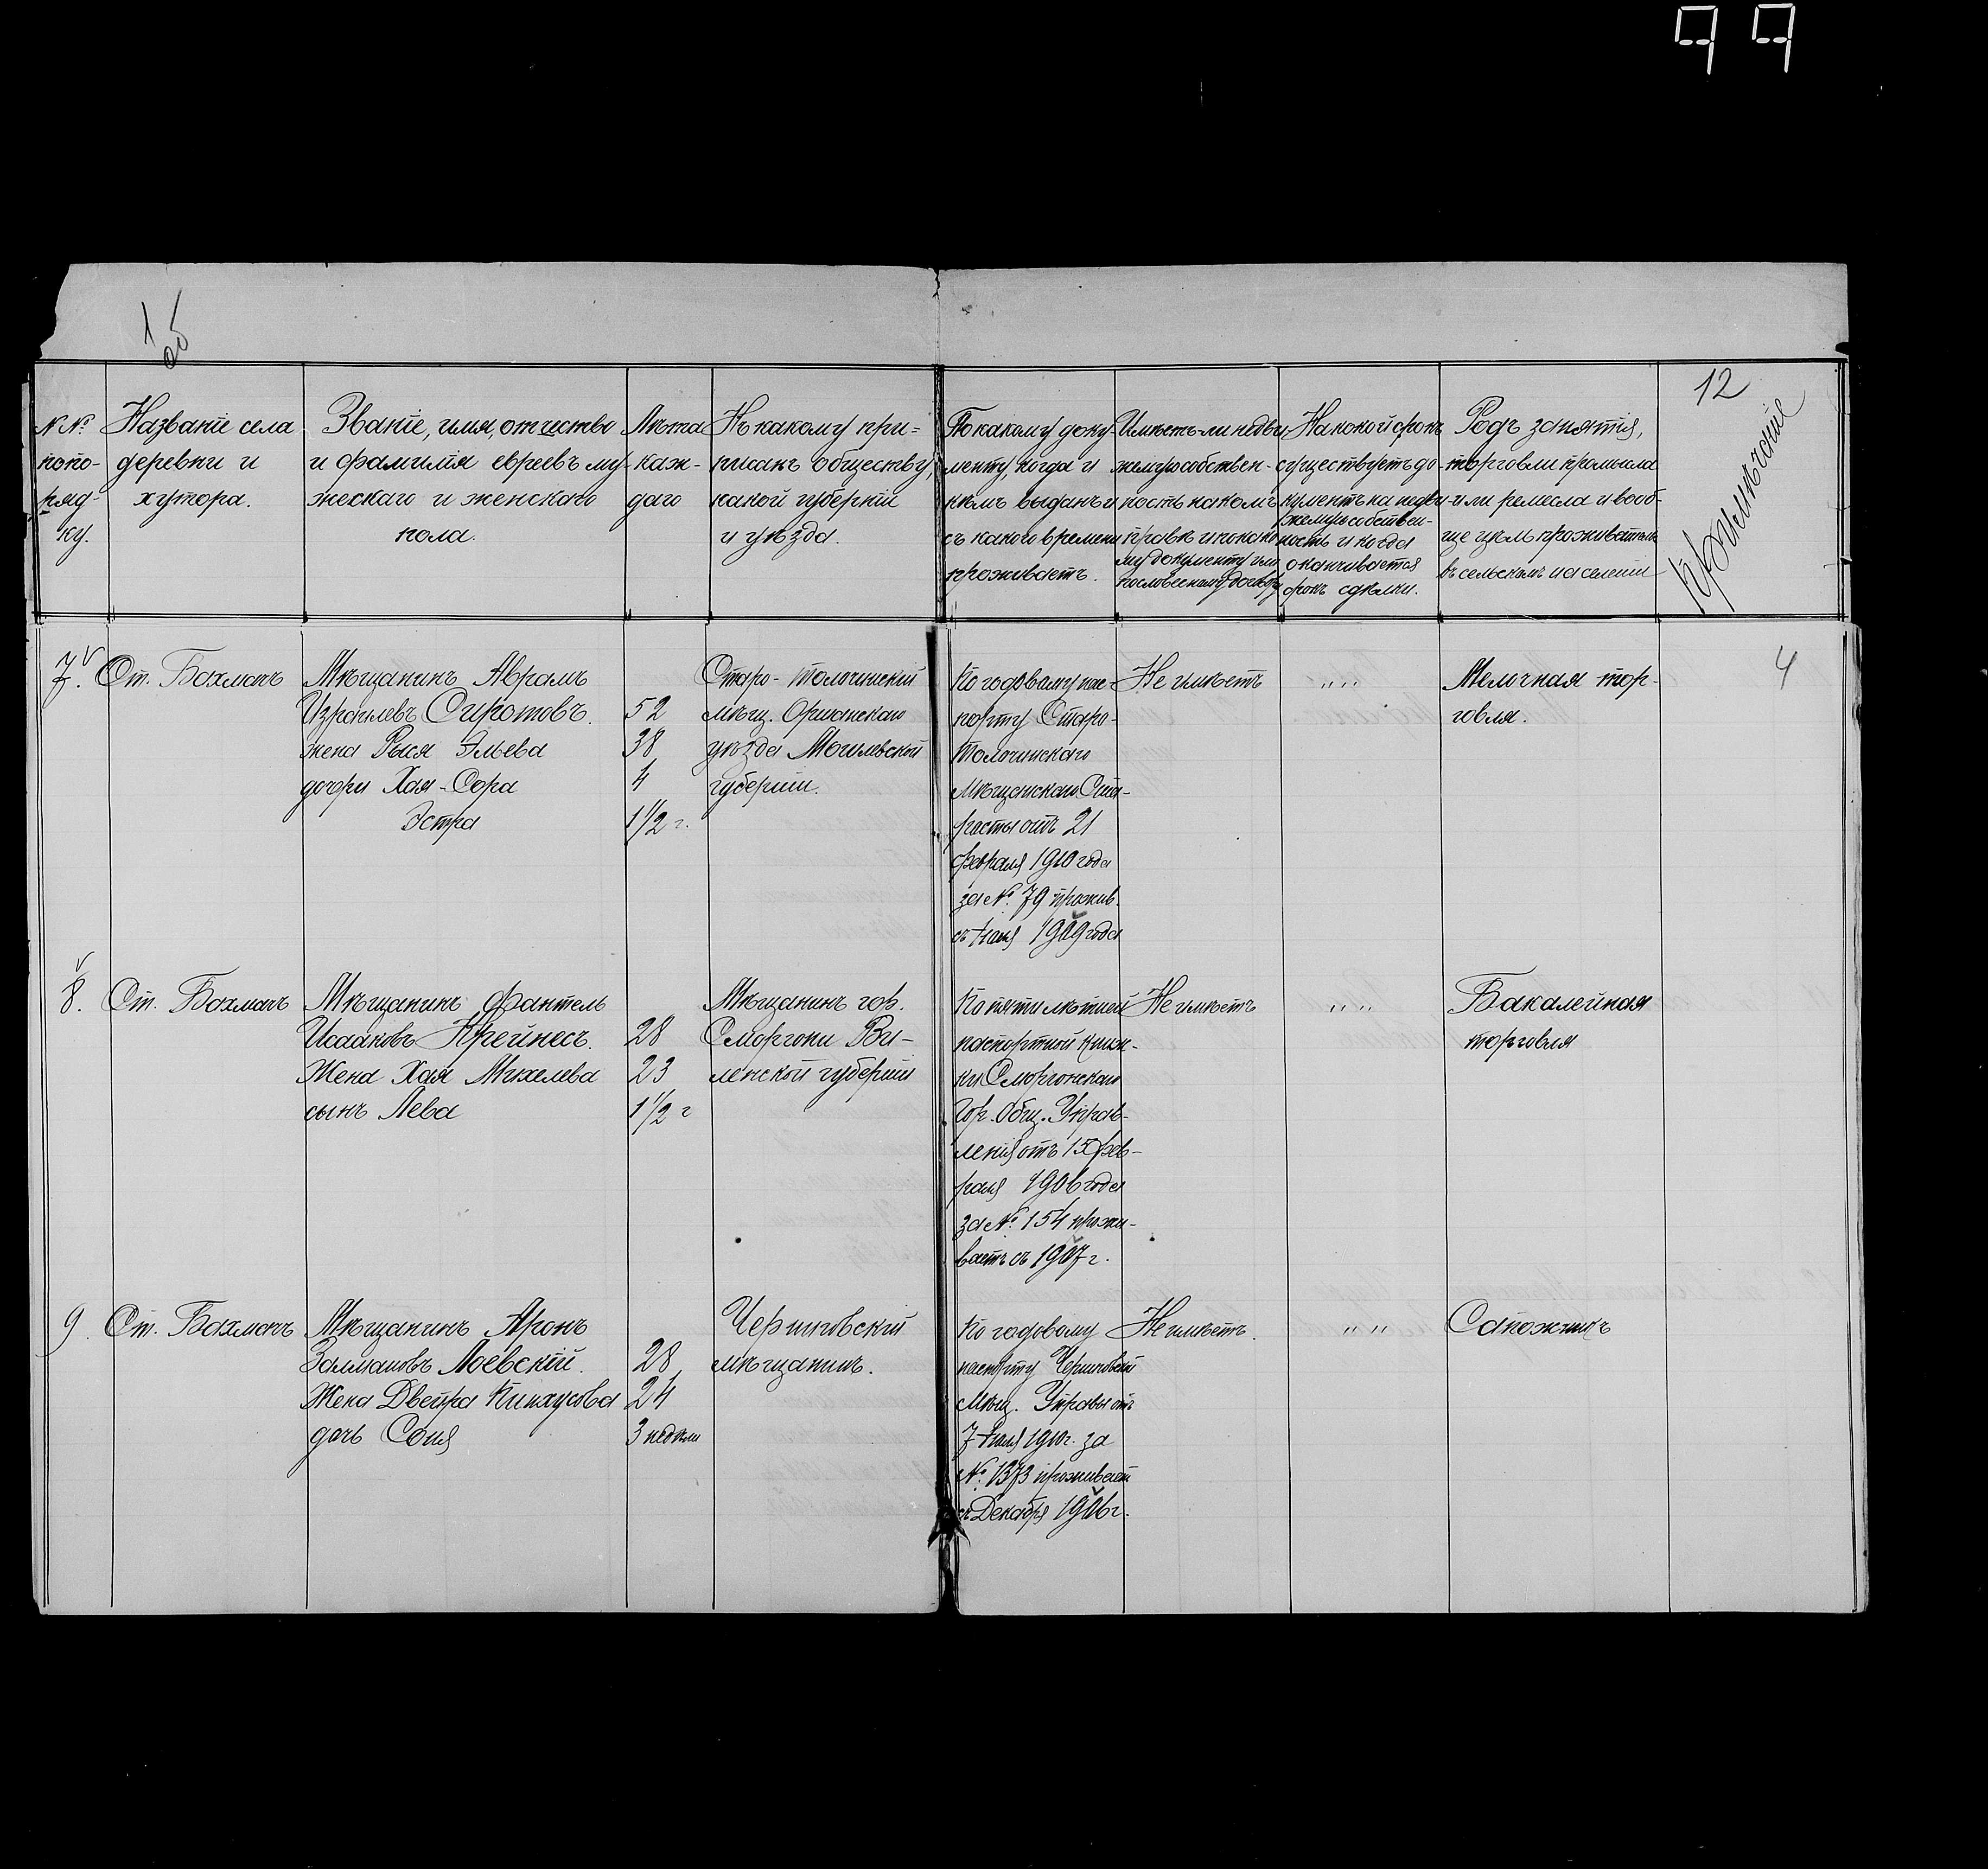 99
1
об
12
№№
по по-
ряд-
ку.
Названіе села
деревни и
хутора.
Званіе, имя, отчество
и фамилія евреевъ му-
жескаго и женскаго
пола.
Лѣта
каж-
даго
Къ какому при-
писанъ обществу,
какой губерніи
и уѣзда.
По какому доку-
менту, когда и
кѣмъ выданъ и
съ какого времени
проживаетъ.
Имѣетъ-ли недви-
жимую собствен-
ность на какомъ
правѣ и по како
му документу или
по словесному договору
На какой срокъ
существуетъ до-
кументъ на недви-
жимую собствен-
ность и когда
оканчивается
срокъ сдѣлки.
Родъ занятія,
торговли промысла
или ремесла и вооб-
ще чѣмъ проживаетъ
въ сельскомъ населеніи
Примѣчаніе
4
7. Ст. Бахмачъ
Мѣщанинъ Аврамъ
Израилевъ Сиротовъ. 52
жена Рыся Эльева 38
дочери Хая-Сора 4
Эстра 1 1/2 г.
Старо-Толочинскій
мѣщ. Оршанскаго
уѣзда Могилевской
губерніи.
По годовому пас-
порту Старо-
Толочинскаго
Мѣщанскаго Ста-
росты отъ 21
февраля 1910 года
за № 79 прожив.
съ 1909 года
Не имѣетъ
" "
Мелочная тор-
говля.
8. Ст. Бахмачъ
Мѣщанинъ Фантель
Исааковъ Крейнесъ. 28
Жена Хая Михелева 23
сынъ Лева 1 1/2 г
Мѣщанинъ гор.
Сморгони Ви-
ленской губерніи
По пятилѣтней
паспортной книж-
ки Сморгонскаго
Гор. Общ. Управ-
ленія отъ 15 фев-
раля 1906 года
за № 154 прожи-
ваетъ съ 1907 г.
Не имѣетъ
" "
Бакалейная
торговля
9. Ст. Бахмачъ
Мѣщанинъ Аронъ
Залмановъ Лоевскій. 28
Жена Двейра Пинхусова 24
дочь Соня 3 недѣли
Черниговскій
мѣщанинъ.
По годовому
паспорту Черниговской
Мѣщ. Управы отъ
7 1910 г. за
№ 1373 проживаетъ
съ Декабря 1906 г.
Не имѣетъ.
" "
Сапожникъ